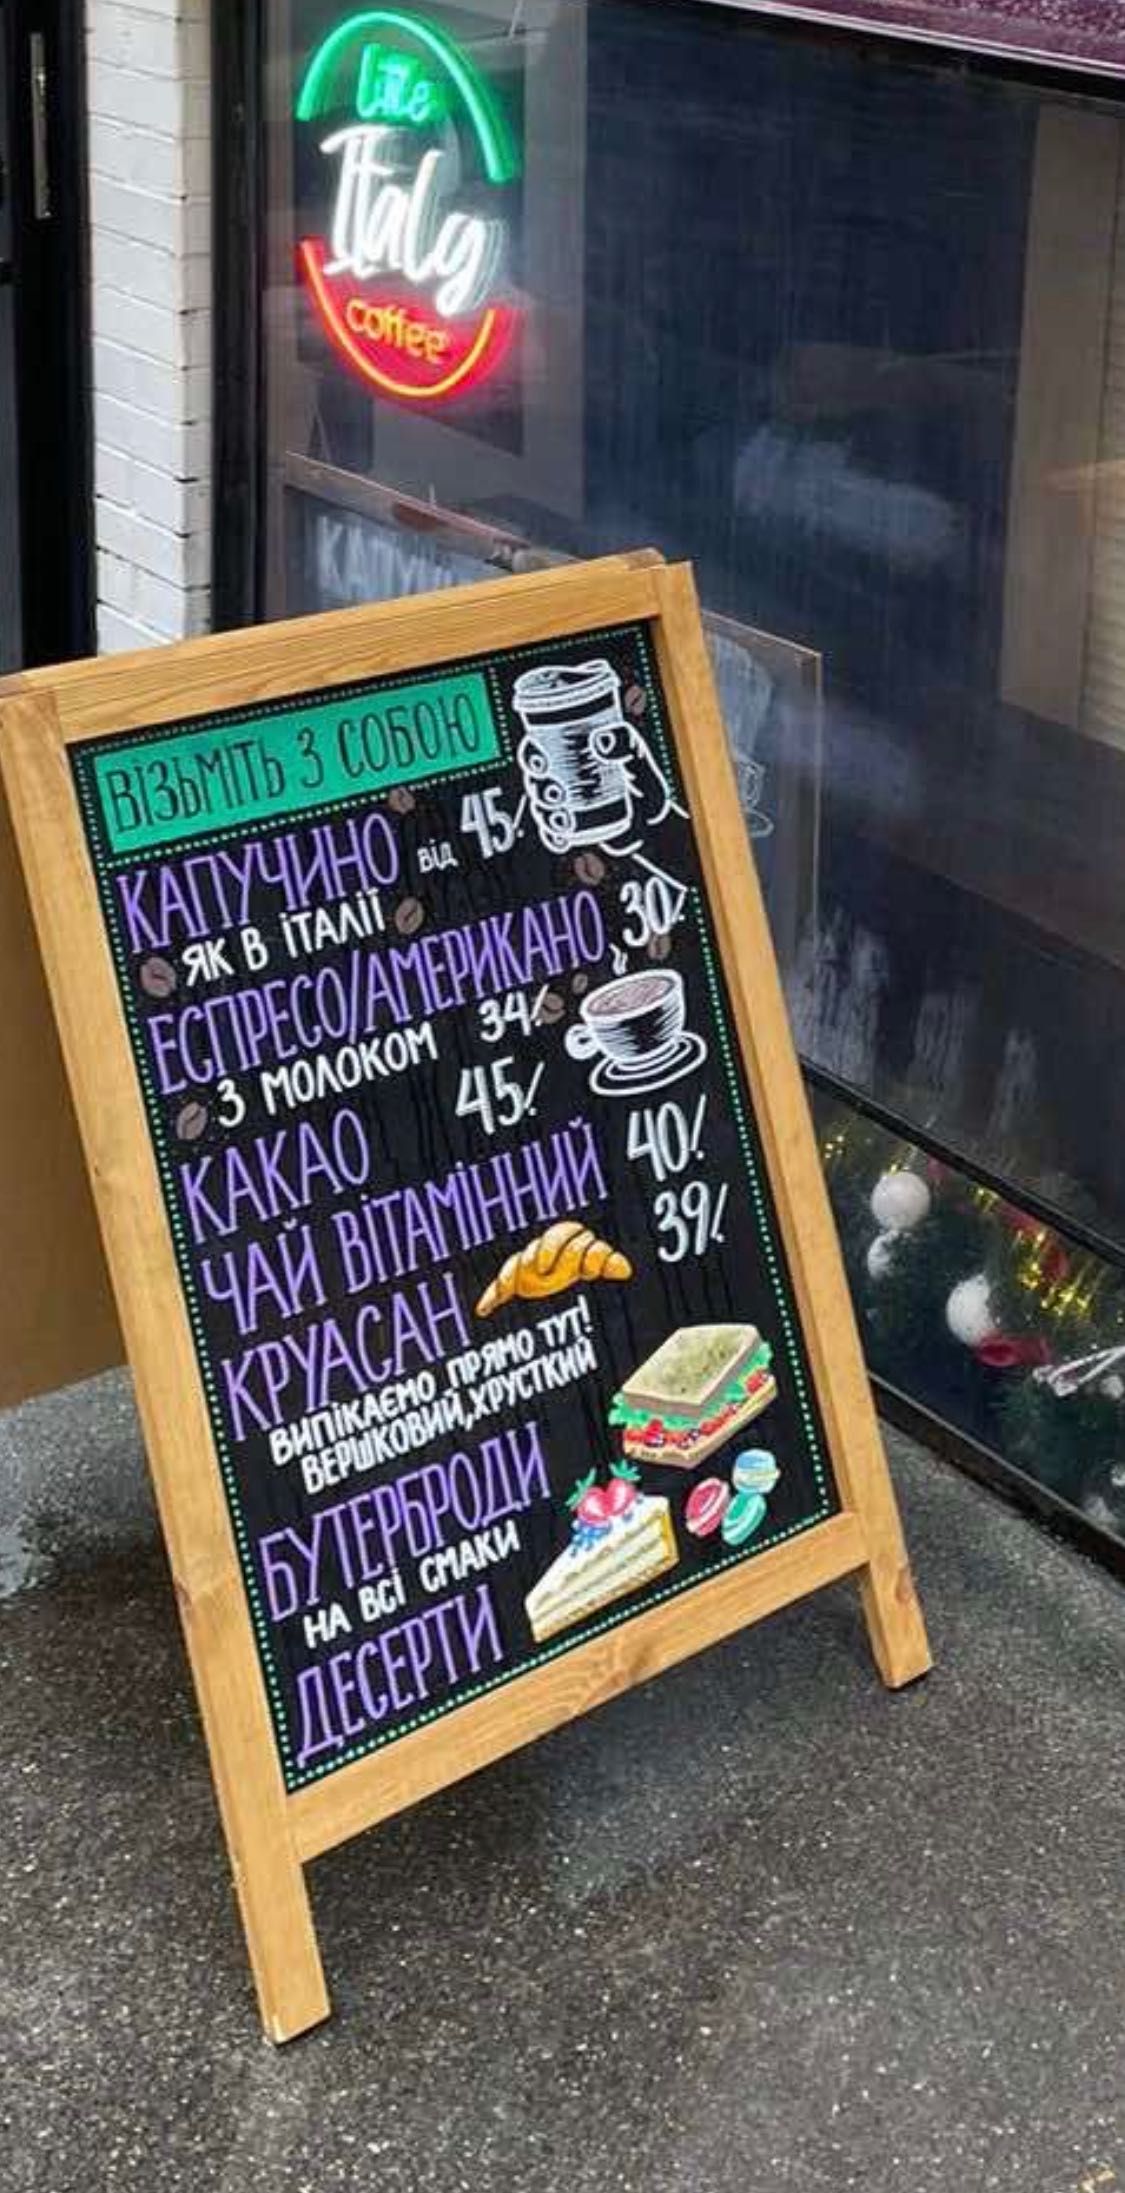 Little
Italy
coffee
ВІЗЬМІТЬ З СОБОЮ
КАПУЧИНО від 45/
ЯК В ІТАЛІЇ
ЕСПРЕСО/АМЕРИКАНО 30/
З МОЛОКОМ 34/
КАКАО 45/
ЧАЙ ВІТАМІННИЙ 40/
КРУАСАН 39/
ВИПІКАЄМО ПРЯМО ТУТ!
ВЕРШКОВИЙ, ХРУСТКИЙ
БУТЕРБРОДИ
НА ВСІ СМАКИ
ДЕСЕРТИ